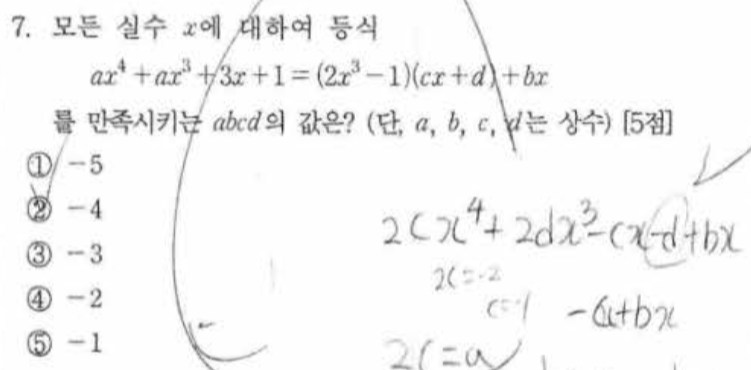 7. 모든 실수 x에 대하여 등식
ax⁴+ax³+3x+1=(2x³-1)(cx+d)+bx
를 만족시키는 abcd의 값은? (단, a, b, c, d는 상수) [5점]
① -5
② -4
③ -3
④ -2
⑤ -1
2cx⁴+2dx³-cx-d+bx
2c=-2
c=-1
2c=a